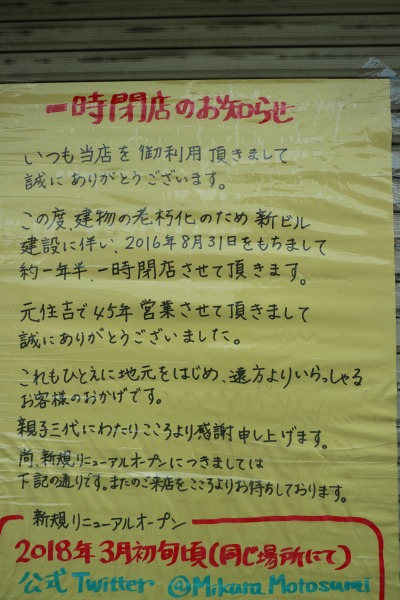 一時閉店のお知らせ
いつも当店を御利用頂きまして
誠にありがとうございます。
この度、建物の老朽化のため新ビル
建設に伴い、2016年8月31日をもちまして
約一年半、一時閉店させて頂きます。
元住吉で45年営業させて頂きまして
誠にありがとうございました。
これもひとえに地元をはじめ、遠方よりいらっしゃる
お客様のおかげです。
親子三代にわたりこころより感謝申し上げます。
尚、新規リニューアルオープンにつきましては
下記の通りです。またのご来店をこころよりお待ちしております。
新規リニューアルオープン
2018年3月初旬頃(同じ場所にて)
公式Twitter @Mikura_Motosumi